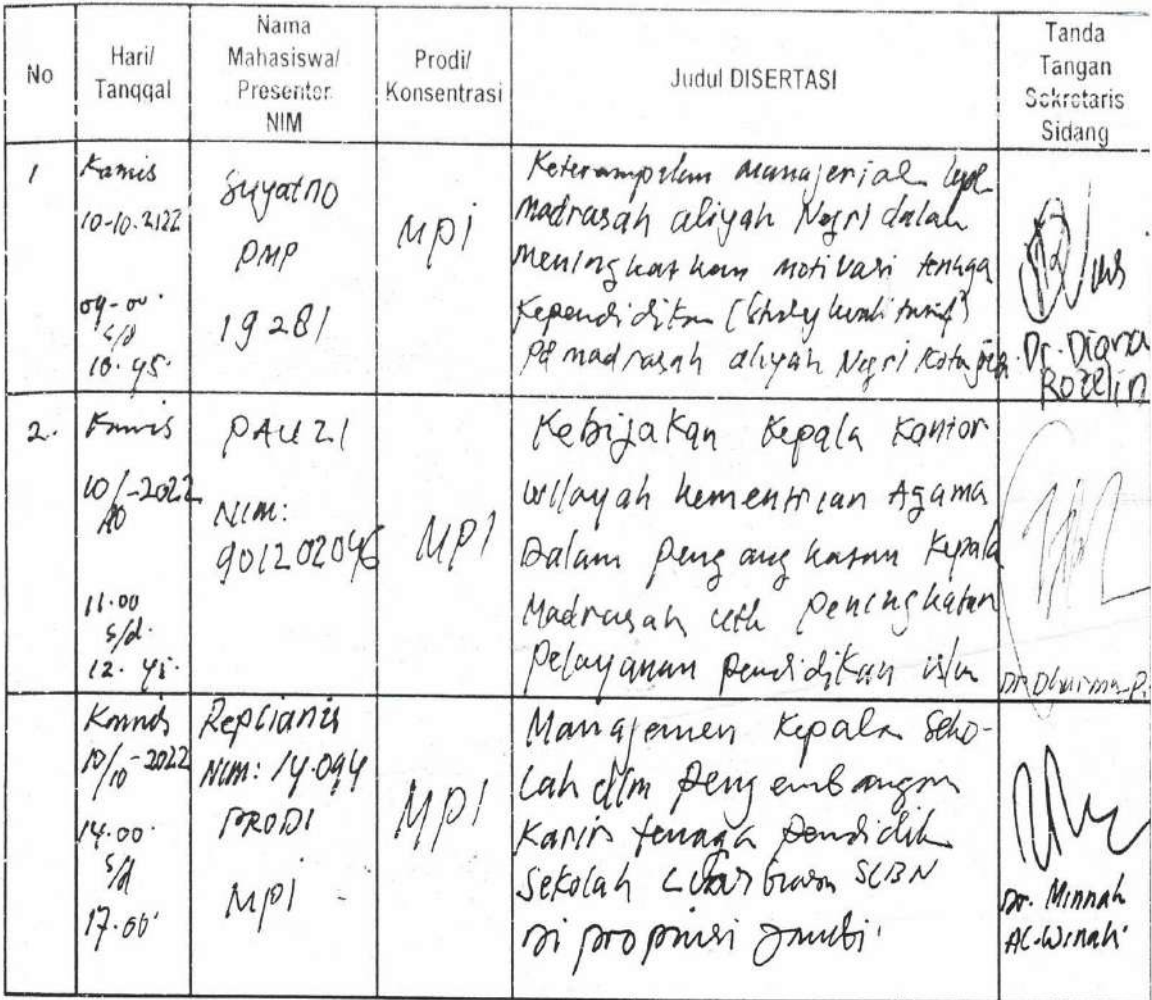 No
Hari/
Tanqqal
Nama
Mahasiswa/
Presenter
NIM
Prodi/
Konsentrasi
Judul DISERTASI
Tanda
Tangan
Sekretaris
Sidang
1
Kamis
10-10-2122
09-00
s/d
10.45.
Suyatno
PMP
19281
MPI
Keterampilan manajerial
madrasah aliyah Negri dalam
meningkatkan motivasi tenaga
Kependidikan (Study kualitatif)
Pd madrasah aliyah Negri Kota
Dr. Diana
Rozelin
2.
Kamis
10/10-2022
11.00
s/d.
12.45.
PAUZI
NIM:
901202046
MPI
Kebijakan Kepala Kantor
wilayah kementrian Agama
Dalam pengangkatan Kepala
Madrasah utk peningkatan
Pelayanan pendidikan islm
Dr. Dharma P.
Kamis
10/10-2022
14.00.
s/d
17.00.
Repelianis
NIM: 14.094
PRODI
MPI
MPI
Manajemen Kepala Seko-
lah dlm pengembangan
Karir tenaga pendidik
Sekolah Luar biasa SLBN
di propinsi Jambi.
Dr. Minnah